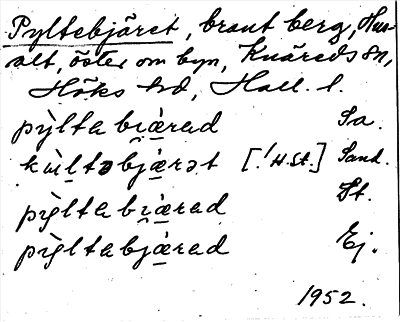 Pyltebjäret, brant berg, Hus-
alt, öster om byn, Knäreds sn,
Höks hd, Hall. l.
pỳlta bi̯ä̀rad Sa.
kùl̯təbjä̀rət [! H.St.] Sand.
pỳlta bi̯ä̀rad St.
pỳlta bjä̀rad Ej.
1952.